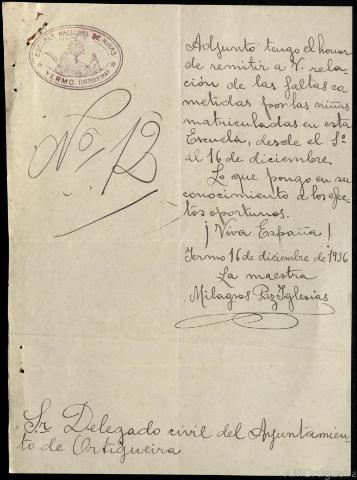 ESCUELA NACIONAL DE NIÑAS
YERMO (ORTIGUEIRA)
No. 12
Adjunto tengo el honor
de remitir a V. rela-
ción de las faltas co
metidas por las niñas
matriculadas en esta
Escuela, desde el 1º
al 16 de diciembre.
Lo que pongo en su
conocimiento a los efec
tos oportunos.
¡Viva España!
Yermo 16 de diciembre de 1936
La maestra
Milagros Paz Iglesias
Sr Delegado civil del Ayuntamien-
to de Ortigueira